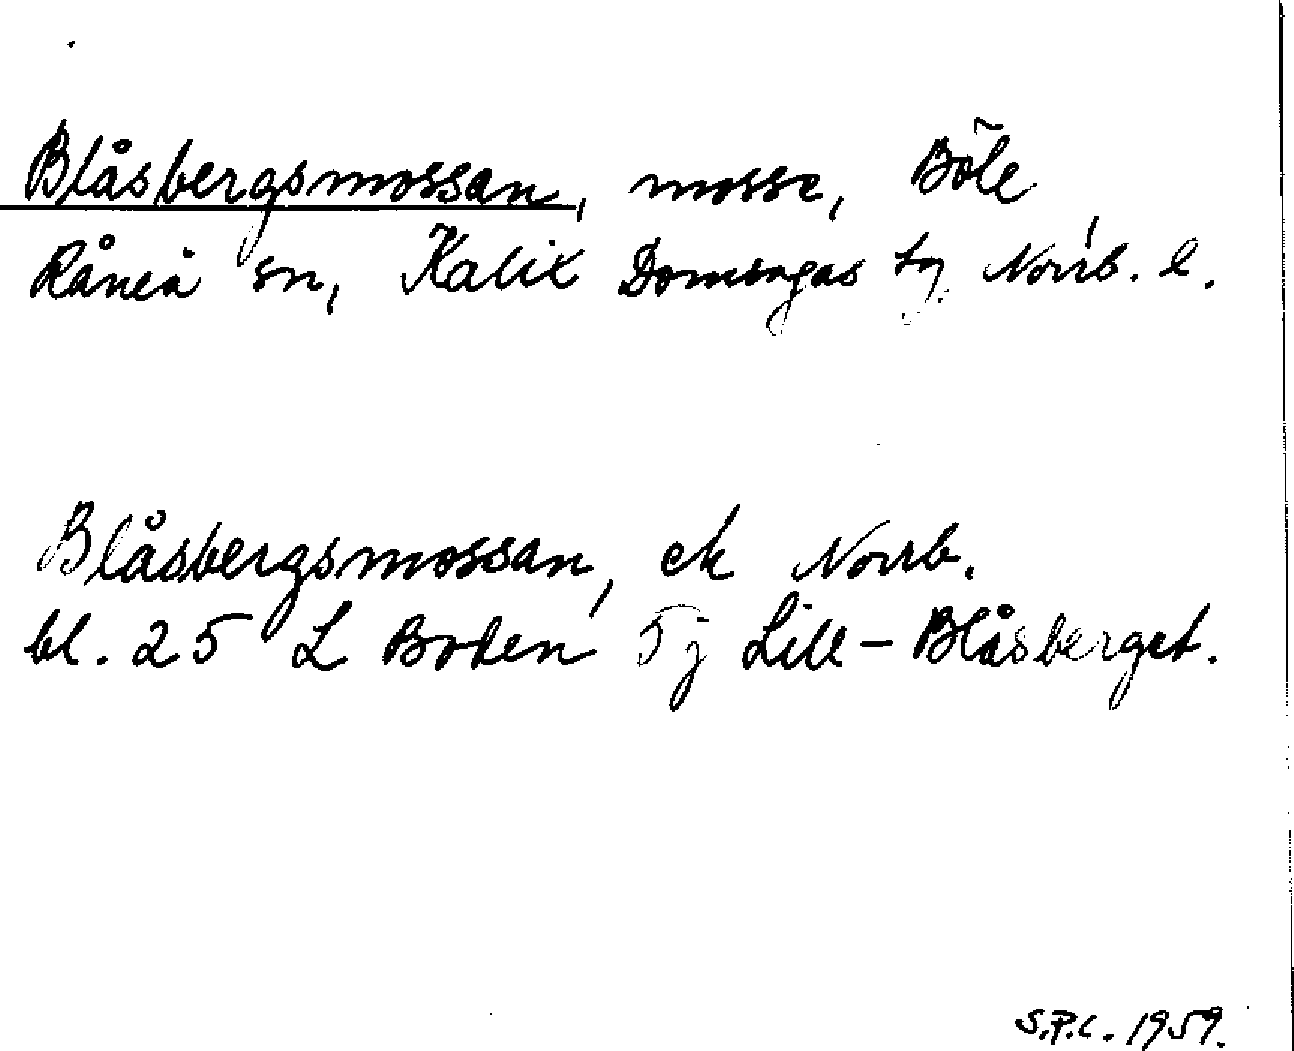 Blåsbergsmossan, mosse, Böle
Råneå sn, Kalix Domsagas tg, Norrb. l.
Blåsbergsmossan, ek Norrb.
bl. 25 L Boden 5j Lill-Blåsberget.
S.P.C. 1959.